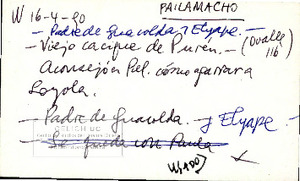 PAILAMACHO
W 16-4-90
- Padre de Guacolda y Elyape. -
- Viejo cacique de Puren. - (Ovalle 116)
Aconsejó a Pel. cómo agarrar a
Loyola.
- Padre de Guacolda. - y Elyape -
DELIH UC
- Se queda con Paula
USADO